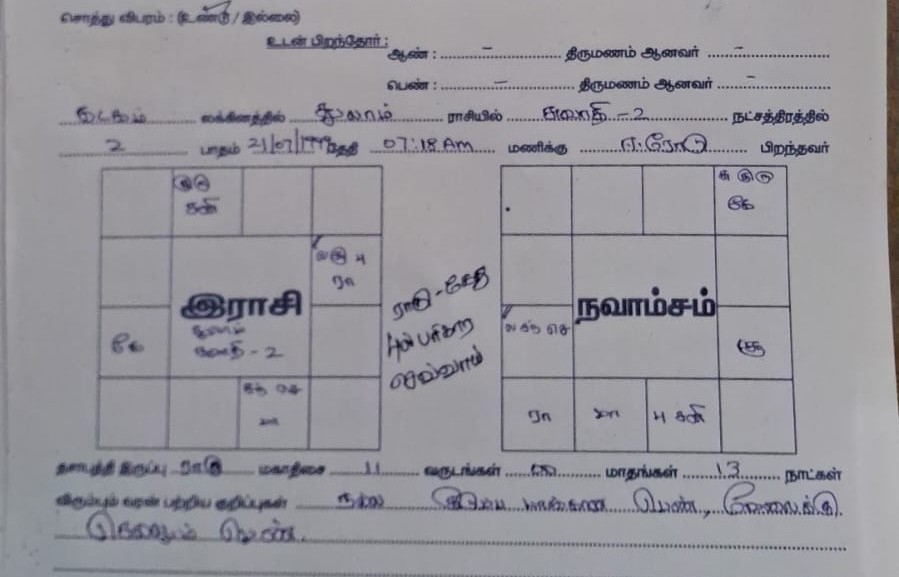 சொத்து விபரம் : (உண்டு / இல்லை)
உடன் பிறந்தோர் :
ஆண் : – திருமணம் ஆனவர் –
பெண் : – திருமணம் ஆனவர் –
கடகம் லக்கினத்தில் துலாம் ராசியில் சுவாதி - 2 நட்சத்திரத்தில்
2 பாதம் 21/07/1999 தேதி 07:18 AM மணிக்கு ஈரோடு பிறந்தவர்
குரு
சனி
ல சூ பு
ரா
இராசி
துலாம்
சுவாதி - 2
கே
சந் செ
சு குரு
கே
நவாம்சம்
ல சந் செ
ரா
பு சனி
ராகு - கேது
செவ்வாய்
தசாபுத்தி இருப்பு ராகு மகாதிசை 11 வருடங்கள் மாதங்கள் 13 நாட்கள்
விரும்பும் வரன் பற்றிய குறிப்புகள் நல்ல பெண், வேலைக்கு
பெண்.